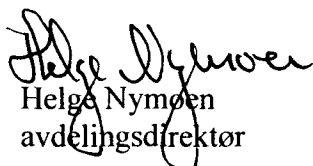 Helge Nymoen
Helge Nymoen
avdelingsdirektør